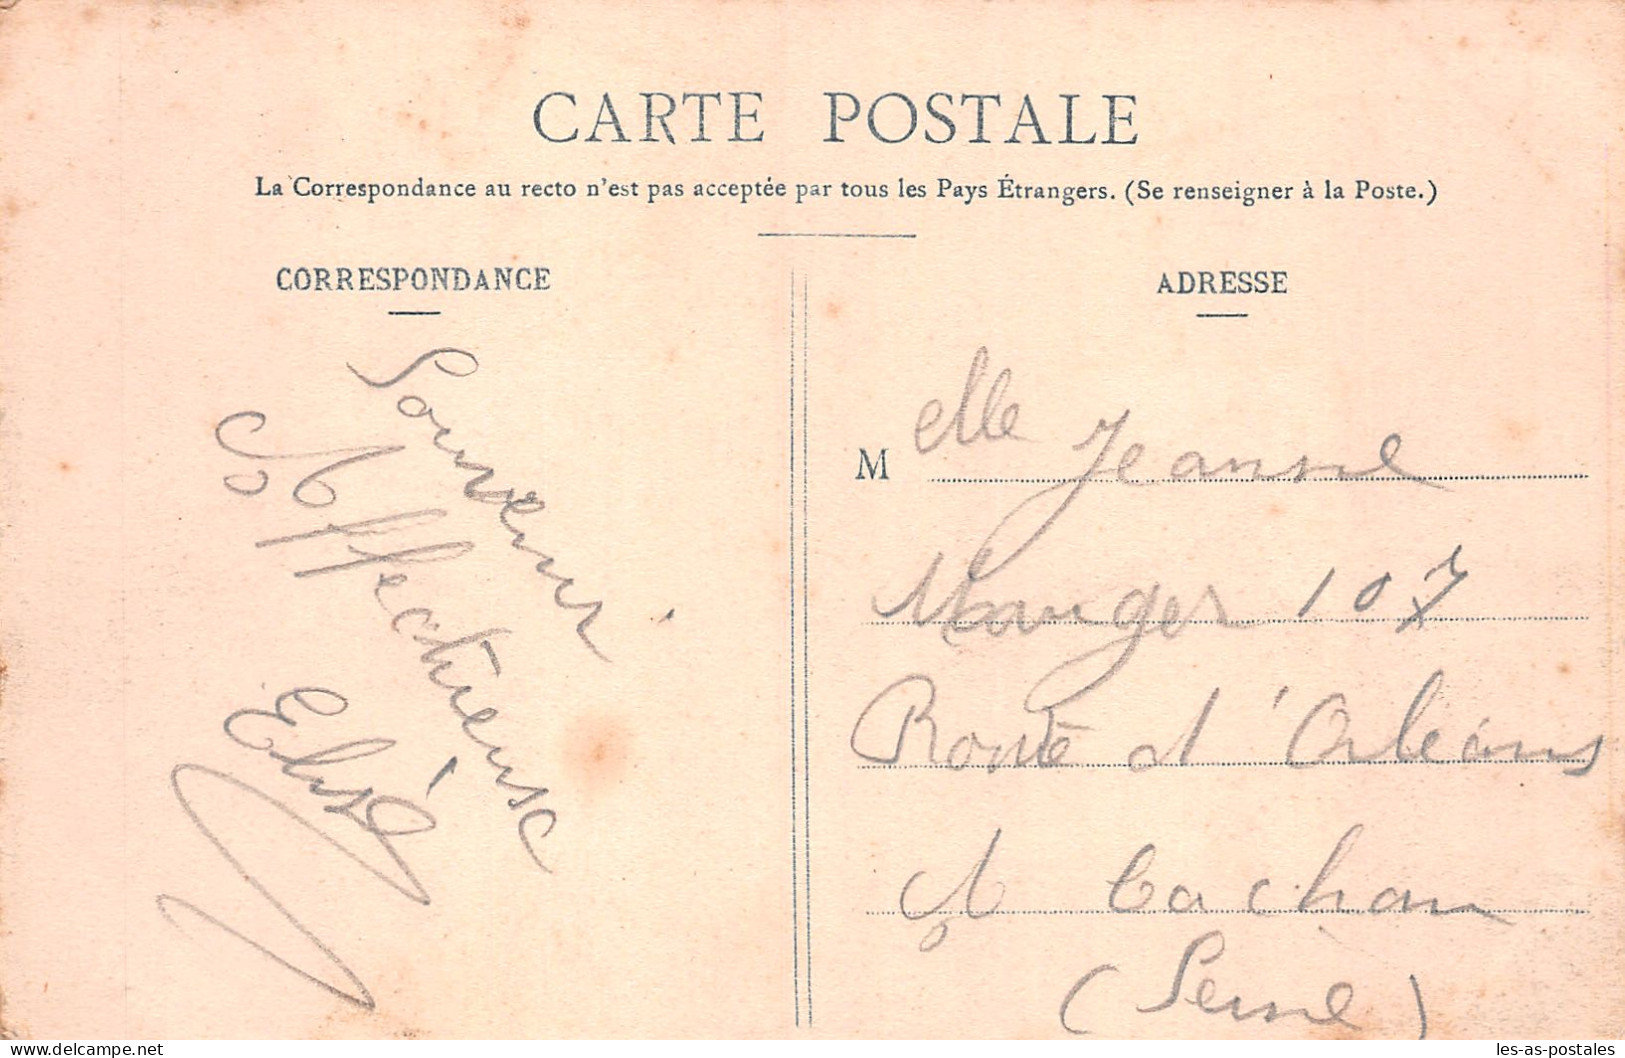 CARTE POSTALE
La Correspondance au recto n'est pas acceptée par tous les Pays Étrangers. (Se renseigner à la Poste.)
CORRESPONDANCE
Souvenir
Affectueuse
Elise
ADRESSE
M elle Jeanne
Mauger 107
Route d'Orléans
A Cachan
(Seine)
www.delcampe.net
les-as-postales